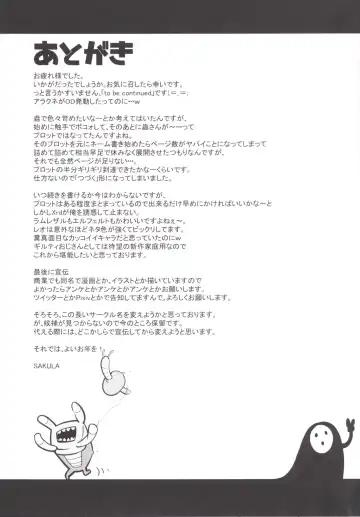 あとがき
お疲れ様でした。
いかがだったでしょうか、お気に召したら幸いです。
っと言うかすいません、「to be continued」です(;=.=;
アラクネがOD発動したってのに…w
虫で色々苛めたいなーとか考えてはいたんですが、
始めに触手でボコォして、そのあとに蟲さんが〜ーって
プロットではなってたんですよね。
そのプロットを元にネーム書き始めたらページ数がヤバイことになってしまって
詰めて詰めて相当早足で休みなく展開させたつもりなんですが、
それでも全然ページが足りない…。
プロットの半分ギリギリ到達できたかなーくらいです。
仕方ないので「つづく」形になってしまいました。
いつ続きを書けるか今はわからないですが、
プロットはある程度まとまっているので出来るだけ早めにかければいいかなーと
しかしXrdが俺を誘惑して止まない。
ラムレザルもエルフェルトもかわいいですよねぇ〜。
レオは意外なほどネタ色が強くてビックリしてます。
糞真面目なカッコイイキャラだと思っていたのにw
ギルティおじさんとしては待望の新作家庭用なので
これから堪能したいと思っております。
最後に宣伝
商業でも同名で漫画とか、イラストとか描いていますので
よかったらアンケとかアンケとかアンケとかお願いします。
ツイッターとかPixivとかで告知してますんで、よろしくお願いします。
そろそろ、この長いサークル名を変えようかと思っております。
が、候補が見つからないので今のところ保留です。
代える際には、どこかしらで宣伝してから変えようと思います。
それでは、よいお年を!
SAKULA